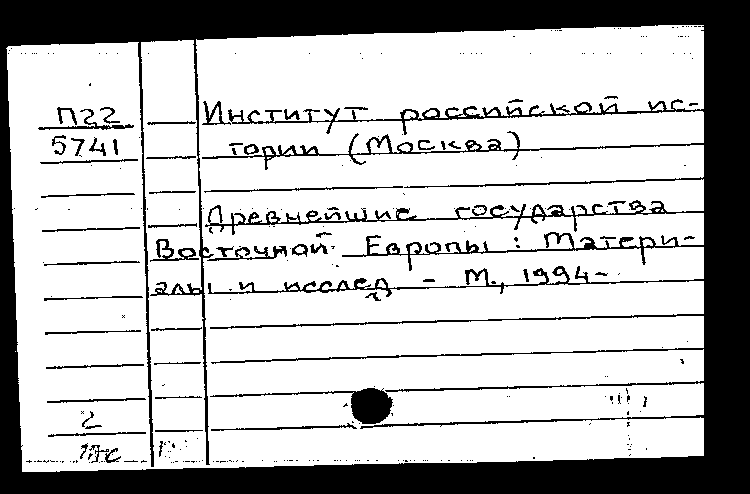 П22 Институт российской ис-
5741 тории (Москва)
Древнейшие государства
Восточной Европы : Матери-
алы и исслед - М., 1994-
2